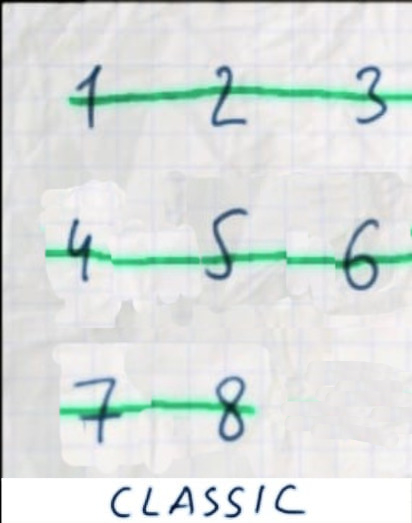 1 2 3
4 5 6
7 8
CLASSIC